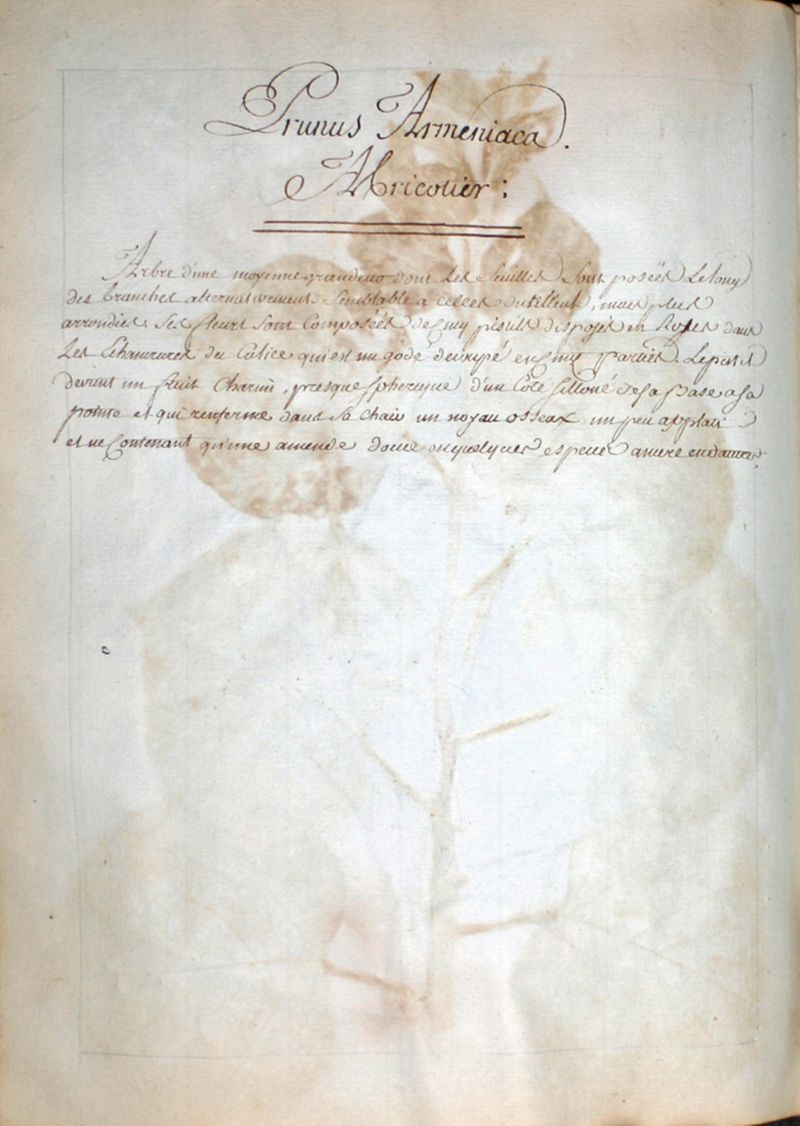 Prunus Armeniaca.
Abricotier:
Arbre d'une moyenne grandeur dont Les feuilles Sont posées Le long
des branches alternativement Semblable a celles du tilleul, mais plus
arrondies, Ses fleurs Sont Composées de Cinq pistils disposés en Roses dans
Les Echancrures du Calice qui est un godé découpé en Cinq Parties. Le pistil
devient un fruit Charnu, presque Spherique d'un Côté Silloné de Sa Base a Sa
pointe et qui renferme dans Sa Chair un noyau osseux un peu applati
et ne Contenant qu'une amende douce ou quelques especes amere